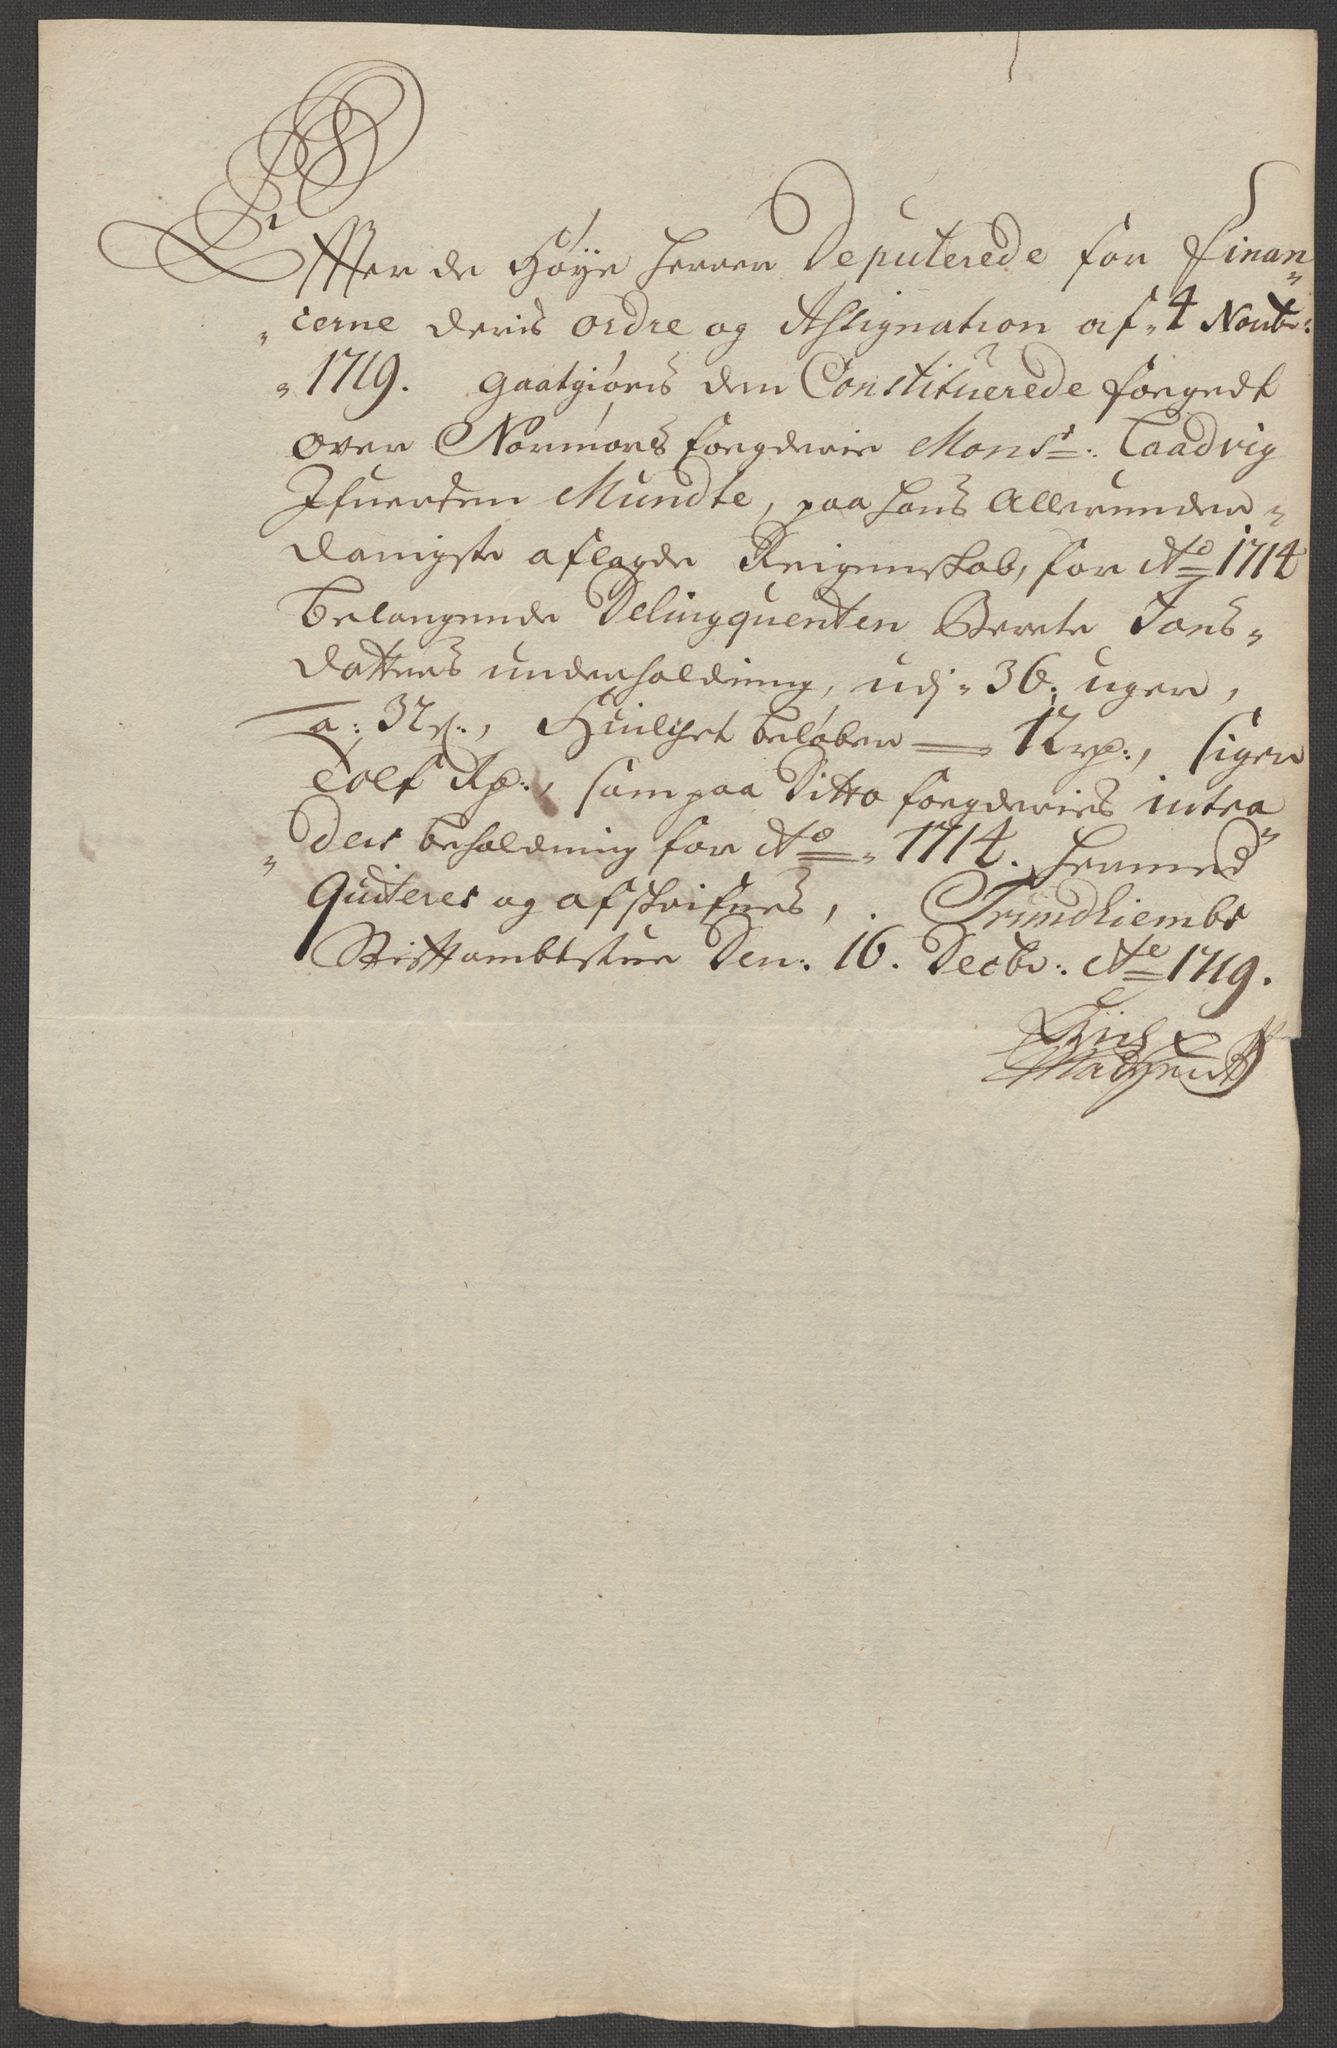 Effter de Høÿe Herrer Deputerede for Finan-
cerne deris Ordre og Assignation af 4 Novbr:
1719. gaatgiøris den Constituerede Foegedt
over Normørs Foegderie Monsr: Laadvig
Ifuersen Mundte, paa hans Allerunder-
danigste aflagde Reigenskab, for Ao 1714
belangende Delingquenten Berete Jons-
datters underholdning, udj 36 uger,
a: 32 s:, Huilchet beløber 12 rd:, siger
Tolf Rd:, som paa Ditto foegderies intra
ders beholdning for Ao 1714. hermed
Quiteres og afskrifues, Trundhiembs
Stiftambtstue Den: 16. Decbr: Ao 1719.